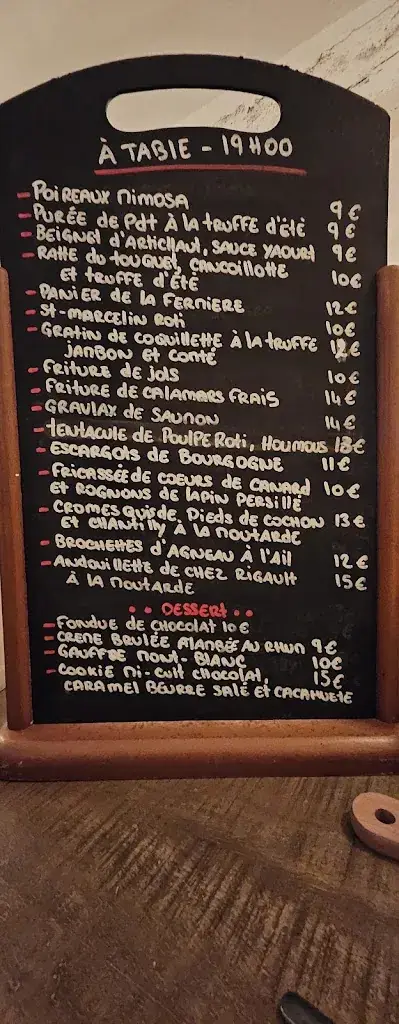 À TABLE - 19H00
- POIREAUX MIMOSA 9€
- PURÉE de Pdt À la truffe d'été 9€
- BEIGNET d'ARTICHAUT, SAUCE YAOURT 9€
- RATTE du touquet, CANCOILLOTTE
et truffe d'ÉTÉ 10€
- PANIER DE LA FERMIERE 12€
- St-MARCELIN Roti 10€
- GRATIN de COQUILLETTE À la truffe 12€
JAMBON et comté
- FRITURE DE JOLS 10€
- FRITURE DE CALAMARS FRAIS 14€
- GRAVLAX de SAUMON 14€
- tENTACULE de POULPE Roti, HOUMOUS 13€
- ESCARGOTS DE BOURGOGNE 11€
- FRICASSÉE de COEURS DE CANARD 10€
et ROGNONS de lAPIN PERSILLÉ
- CROMESQUIS de PIEDS de COCHON 13€
Et CHANTILLY À LA MOUTARDE
- BROCHETTES d'AGNEAU À l'AIL 12€
- ANDOUILLETTE DE CHEZ RIGAULT 15€
À LA MOUTARDE
•• DESSERT ••
- FONDUE DE CHOCOLAT 10€
- CREME BRULÉE FLAMBÉE AU RHUM 9€
- GAUFFRE MONT-BLANC 10€
- COOKIE MI-CUIT CHOCOLAT, 15€
CARAMEL BEURRE SALÉ ET CACAHUETE